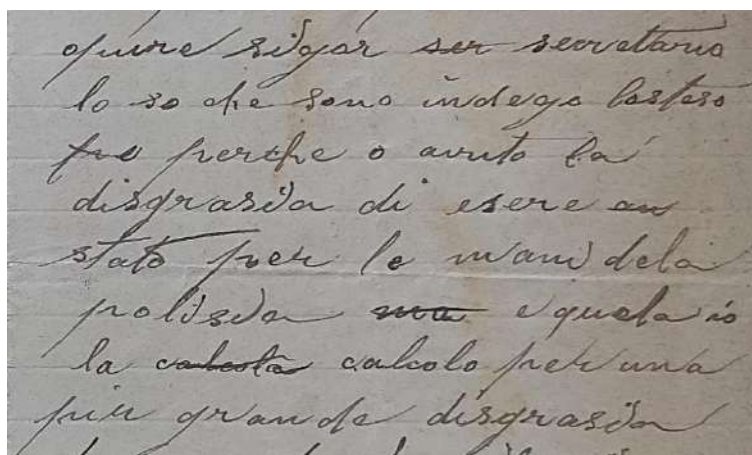 opure sigor ser secretario
lo so che sono indego losteso
fre perche o avuto la
disgrasia di esere an
stato per le mani dela
polisia ma e quela io
la calcola calcolo per una
piu grande disgrasia